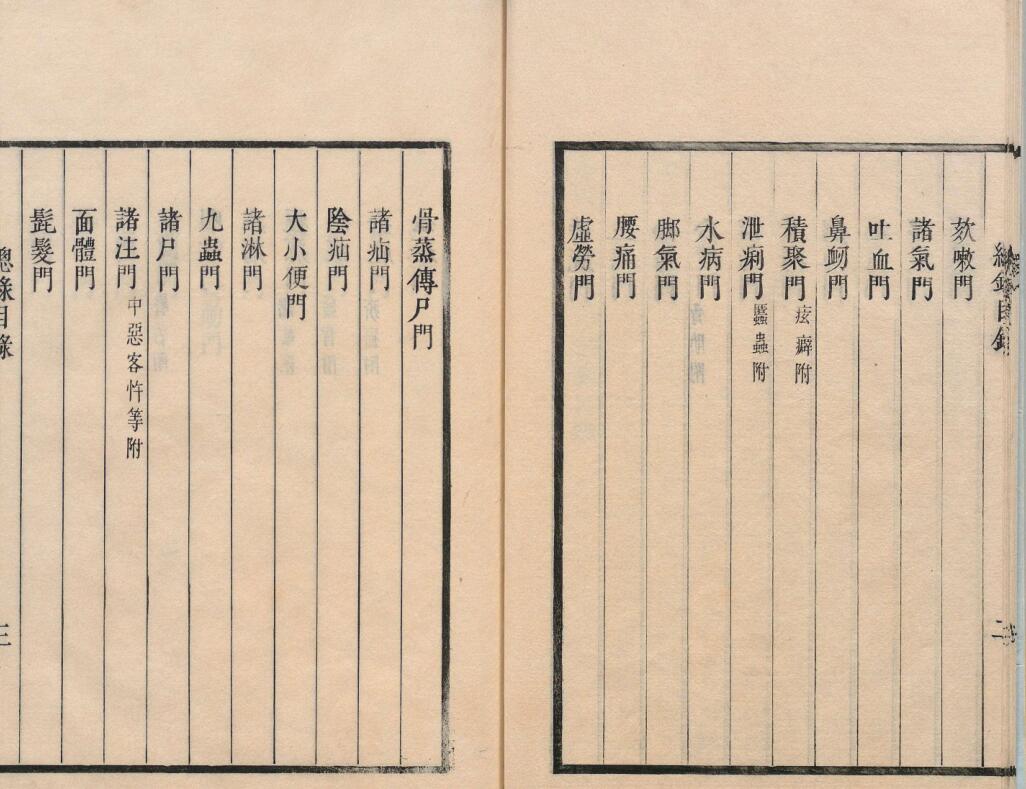 總錄目錄
二
欬嗽門
諸氣門
吐血門
鼻衂門
積聚門 痃癖附
泄痢門 䘌蟲附
水病門
腳氣門
腰痛門
虛勞門
骨蒸傳尸門
諸疝門
陰疝門
大小便門
諸淋門
九蟲門
諸尸門
諸注門 中惡客忤等附
面體門
髭髮門
總錄目錄
三